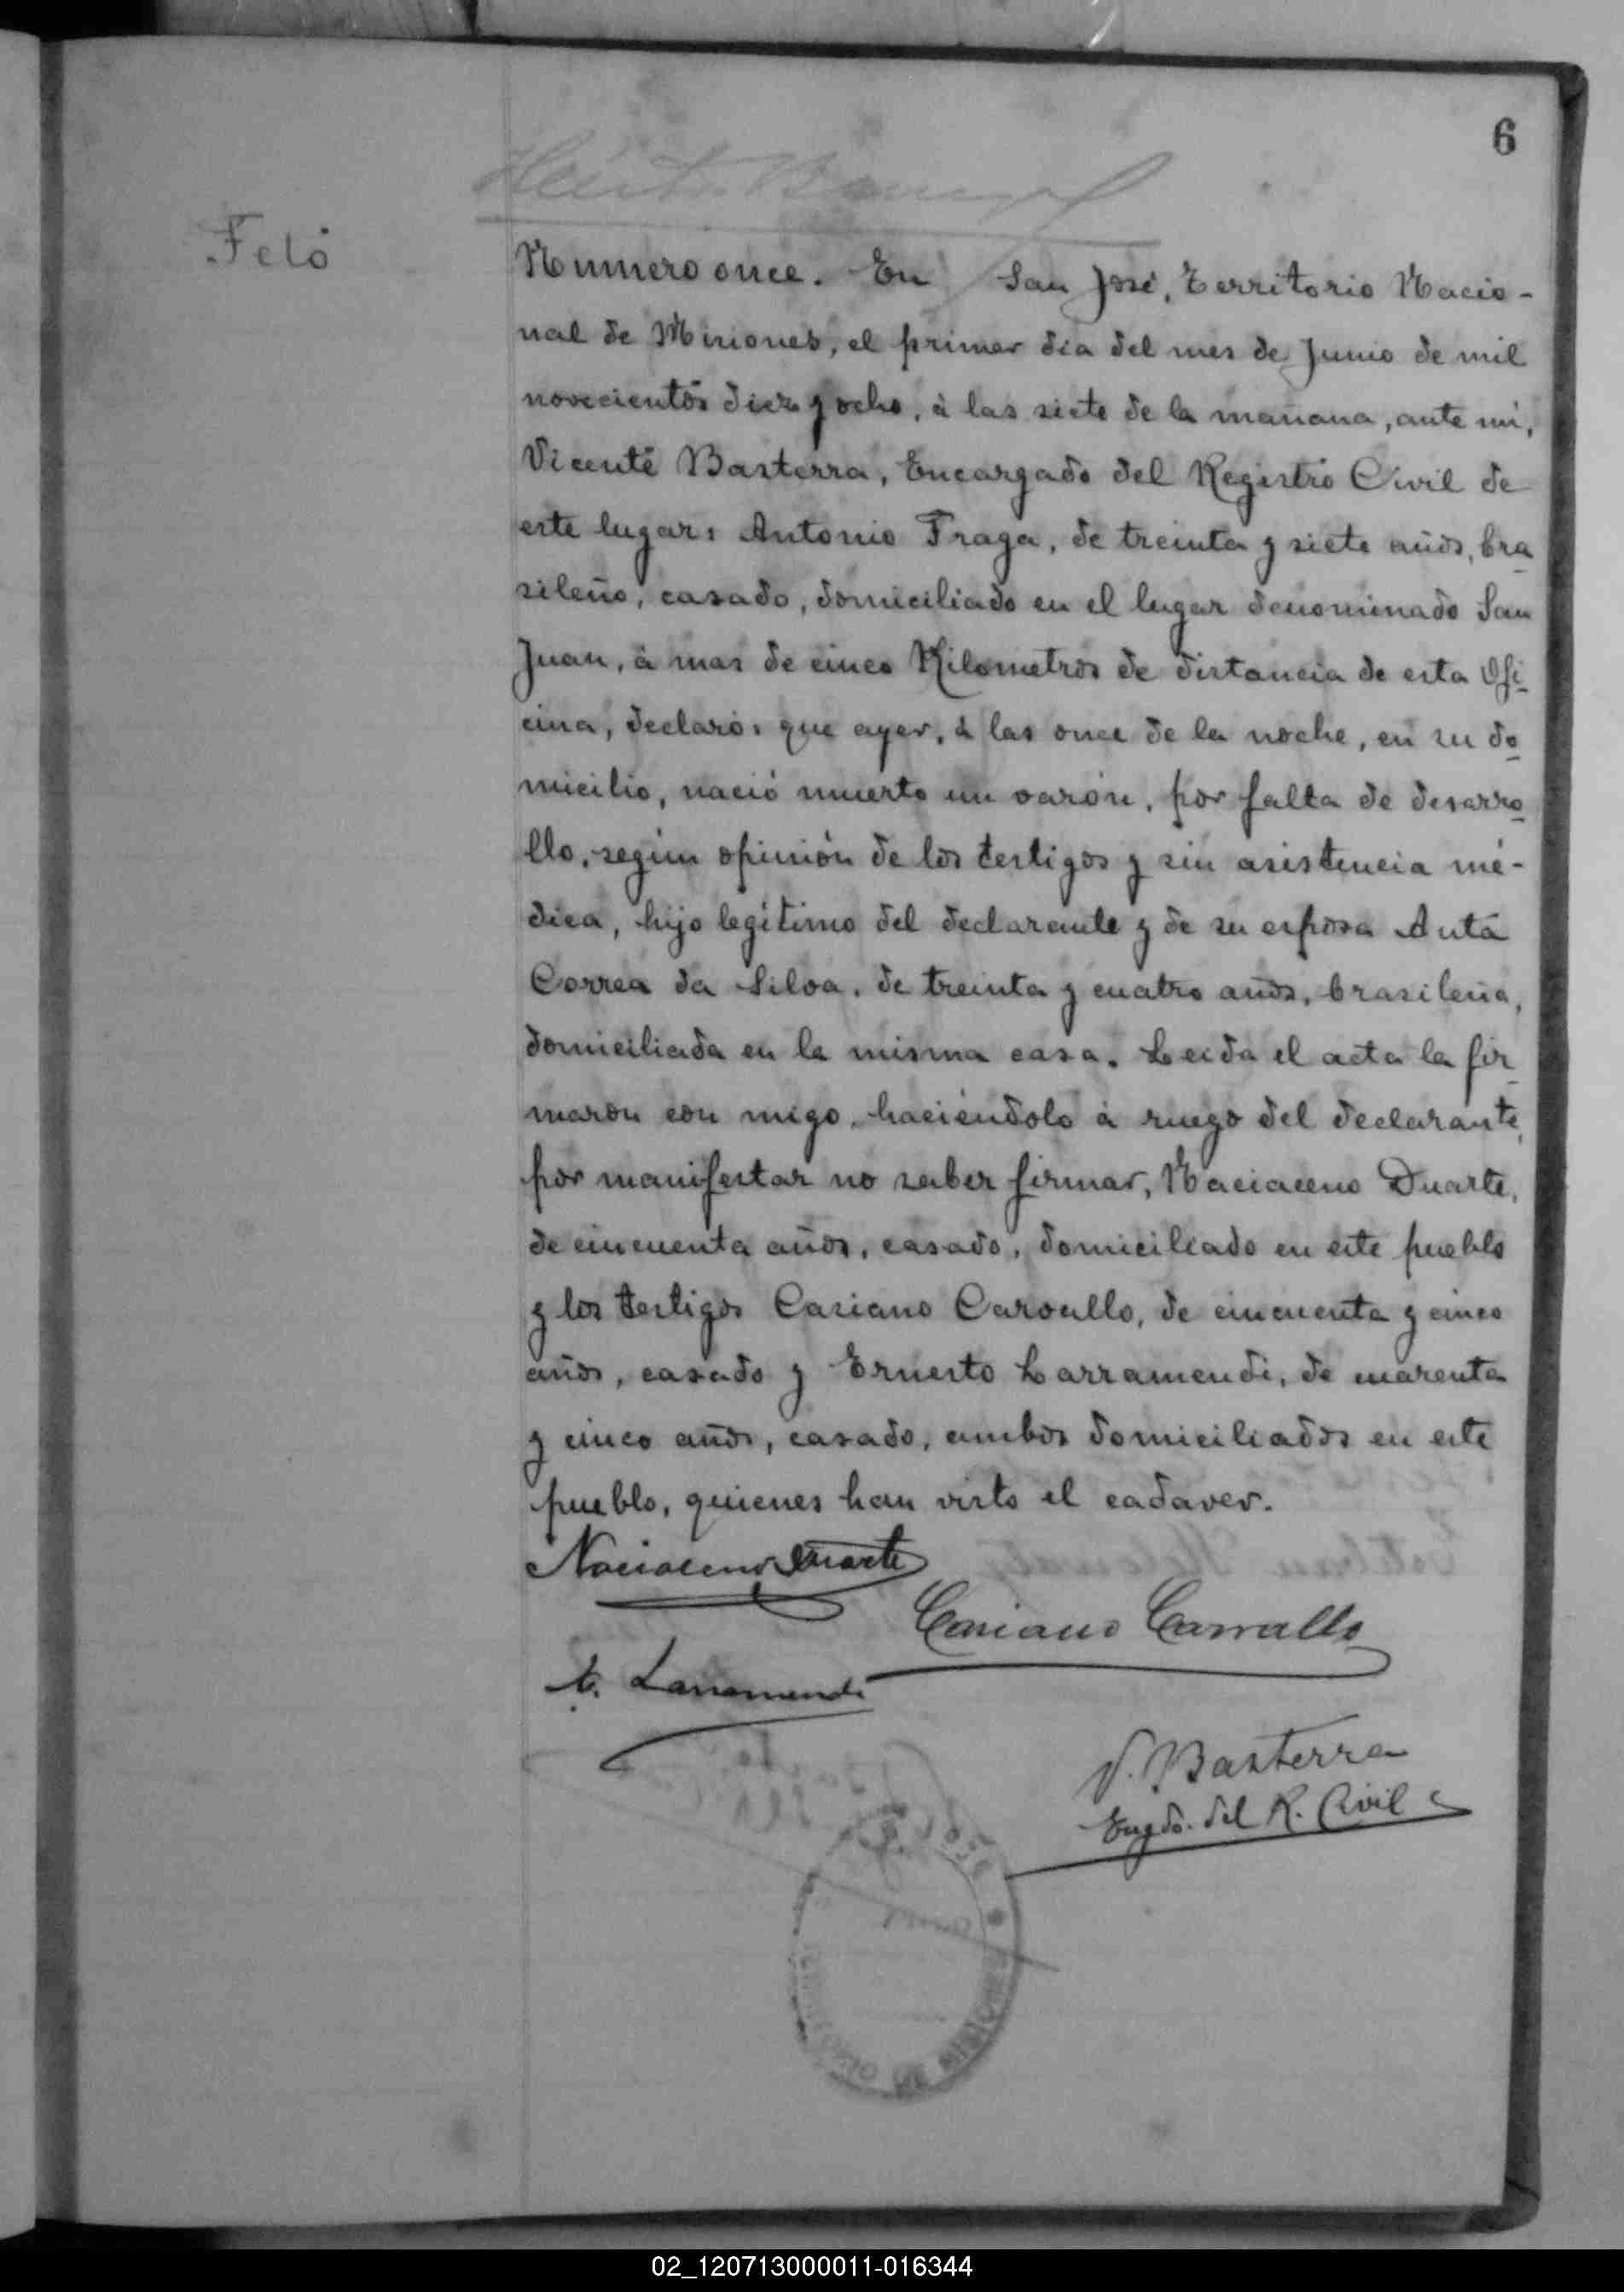 6
Feto
Numero once. En San José, Territorio Nacio-
nal de Misiones, el primer dia del mes de Junio de mil
novecientos diez y ocho, à las siete de la mañana, ante mi,
Vicente Basterra, Encargado del Registro Civil de
este lugar: Antonio Fraga, de treinta y siete años, bra
sileño, casado, domiciliado en el lugar denominado San
Juan, à mas de cinco Kilometros de distancia de esta Ofi
cina, declaró: que ayer, à las once de la noche, en su do
micilio, nació muerto un varón, por falta de desarro
llo, según opinión de los testigos y sin asistencia mé-
dica, hijo legítimo del declarante y de su esposa
Correa da Silva, de treinta y cuatro años, brasileña,
domiciliada en la misma casa. Leida el acta la fir
maron con migo, haciéndolo à ruego del declarante,
por manifestar no saber firmar, Naciaceno Duarte,
de cincuenta años, casado, domiciliado en este pueblo
y los testigos Casiano Carvallo, de cincuenta y cinco
años, casado y Ernesto Larramendi, de cuarenta
y cinco años, casado, ambos domiciliados en este
pueblo, quienes han visto el cadaver.
Naciaceno Duarte
Casiano Carvallo
E. Larramendi
V. Basterra
Engdo. del R. Civil
02_120713000011-016344